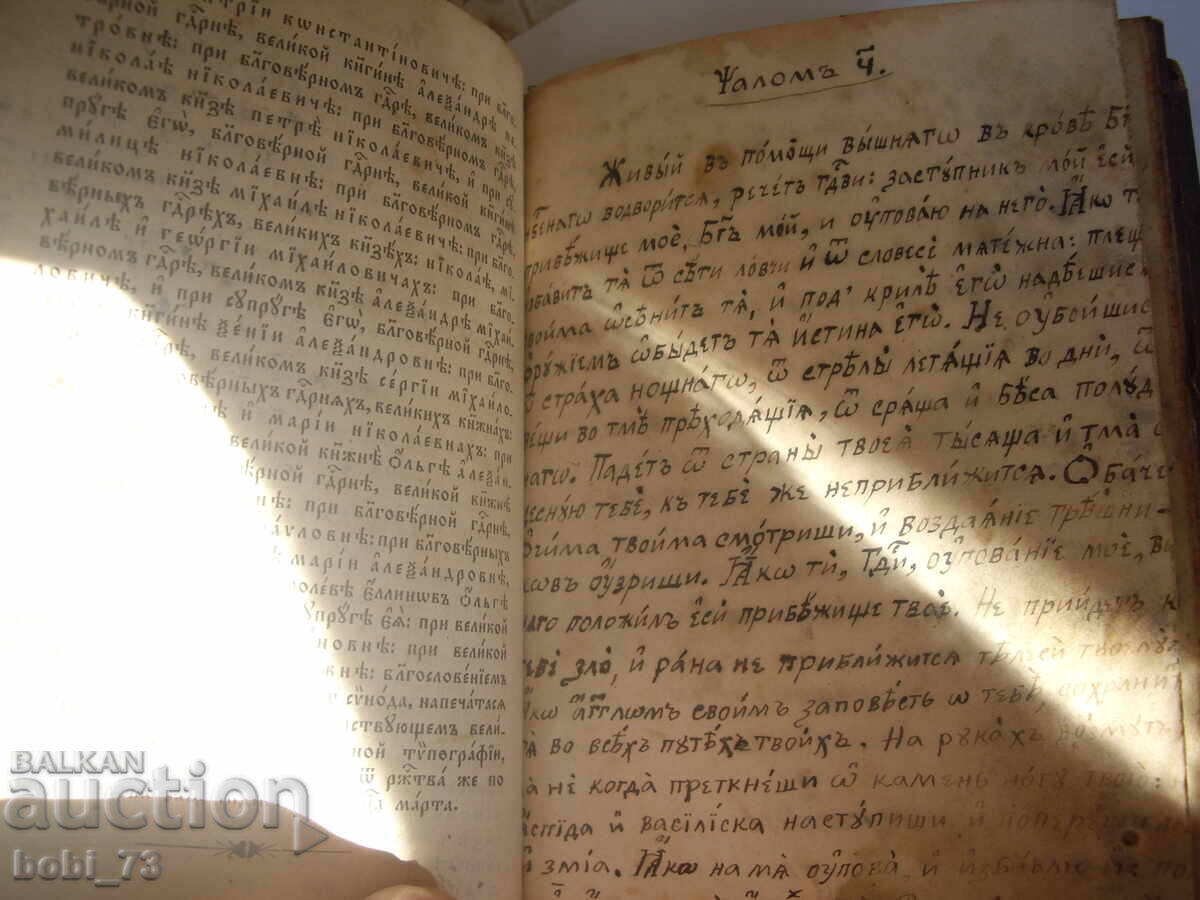 трїи кѡнстантїновичѣ: при
вѣрной гдⷭ҇рнѣ, великой кнѧгинѣ а҆леѯандрѣ пе
тровнѣ: при бл҃говѣрномъ гдⷭ҇рѣ, великомъ кнѧзѣ
нїколаѣ нїколаевичѣ: при бл҃говѣрномъ гдⷭ҇рѣ,
великомъ кнѧзѣ петрѣ нїколаевичѣ, и҆ при сꙋ
прꙋгѣ є҆гѡ̀, бл҃говѣрной гдⷭ҇рнѣ, великой кнѧгинѣ
милицѣ нїколаевнѣ: при бл҃говѣрномъ гдⷭ҇рѣ,
великомъ кнѧзѣ мїхаилѣ нїколаевичѣ: при бл҃го
вѣрныхъ гдⷭ҇рѣхъ, великихъ кнѧзѣхъ: нїколаѣ, мї
хаилѣ и҆ геѡргїи мїхайловичахъ: при бл҃го
вѣрномъ гдⷭ҇рѣ, великомъ кнѧзѣ а҆леѯандрѣ мїхай
ловичѣ, и҆ при сꙋпрꙋгѣ є҆гѡ̀, бл҃говѣрной гдⷭ҇рнѣ,
кнѧгинѣ ѯенїи а҆леѯандровнѣ: при бл҃гo
великомъ кнѧзѣ сергїи мїхайло
вѣрныхъ гдⷭ҇рнѧхъ, великихъ кнѧжнахъ:
и҆ марїи нїколаевнахъ: при
великой кнѧжнѣ ѻ҆льгѣ а҆леѯан
вѣрной гдⷭ҇рнѣ, великой кнѧжнѣ
при бл҃говѣрной гдⷭ҇рнѣ,
аѵловнѣ: при бл҃говѣрныхъ
марїи а҆леѯандровнѣ,
олевѣ є҆ллинѡвъ ѻ҆льгѣ
прꙋгѣ є҆ѧ̀: при великой
новнѣ: бл҃гословенїемъ
сѵнода, напечатасѧ
ствꙋющемъ вели
ной тѵпографїи,
ѿ рж҇тва̀ же по
марта.
Ѱаломъ ч҃.
Живый въ помощи вышнѧгѡ въ кровѣ Бг҃
небнагѡ водворитсѧ, речетъ гдⷭ҇ви: застꙋпникъ мой є҆сѝ,
прибѣжище моѐ, Бг҃ъ мой, и ᲂу҆поваю на него. Ꙗ҆кѡ т
бавитъ тѧ ѿ сѣти ловчи и҆ ѿ словесѐ мѧтежна: плещ
воима ѡ҆сѣнитъ тѧ, и҆ под' крилѣ є҆гѡ̀ надѣешисѧ
рꙋжїемъ ѡ҆быдетъ тѧ и҆стина є҆гѡ̀. Не ᲂу҆боишисѧ
страха нощнагѡ, ѿ стрѣлы летѧщїѧ во дни, ѿ
вещи во тмѣ преходѧщїѧ, ѿ срѧща и҆ бѣса полꙋд
нагѡ. Падетъ ѿ страны твоеѧ тысѧща и҆ тма ѡ
деснꙋю тебѐ, къ тебѣ же неприближитсѧ. Ѻбаче
ѻчима твоима смотриши, и҆ воздаѧнїе грѣшни-
ковъ ᲂу҆зриши. Ꙗ҆кѡ ты̀, Гдⷭ҇и, ᲂу҆пованїе моѐ, вы
наго положилъ є҆сѝ прибѣжище твоѐ. Не прїйдетъ к
тебѣ зло, и҆ рана не приближитсѧ тѣлесѝ твоемꙋ̀
Ꙗкѡ а҆гг҃лѡмъ своимъ заповѣсть ѡ тебѣ, сохранит
тѧ во всѣхъ пꙋтѣхъ твоихъ. На рꙋкахъ возмꙋтъ
да не когда преткнеши ѡ҆ камень ногꙋ твою:
аспїда и҆ васїлїска настꙋпиши, и҆ попереши л
и҆ змїѧ. Ꙗ҆кѡ на мѧ ᲂу҆пова̀, и҆ и҆збавлю и҆: по
BALKAN
auction
bobi_73